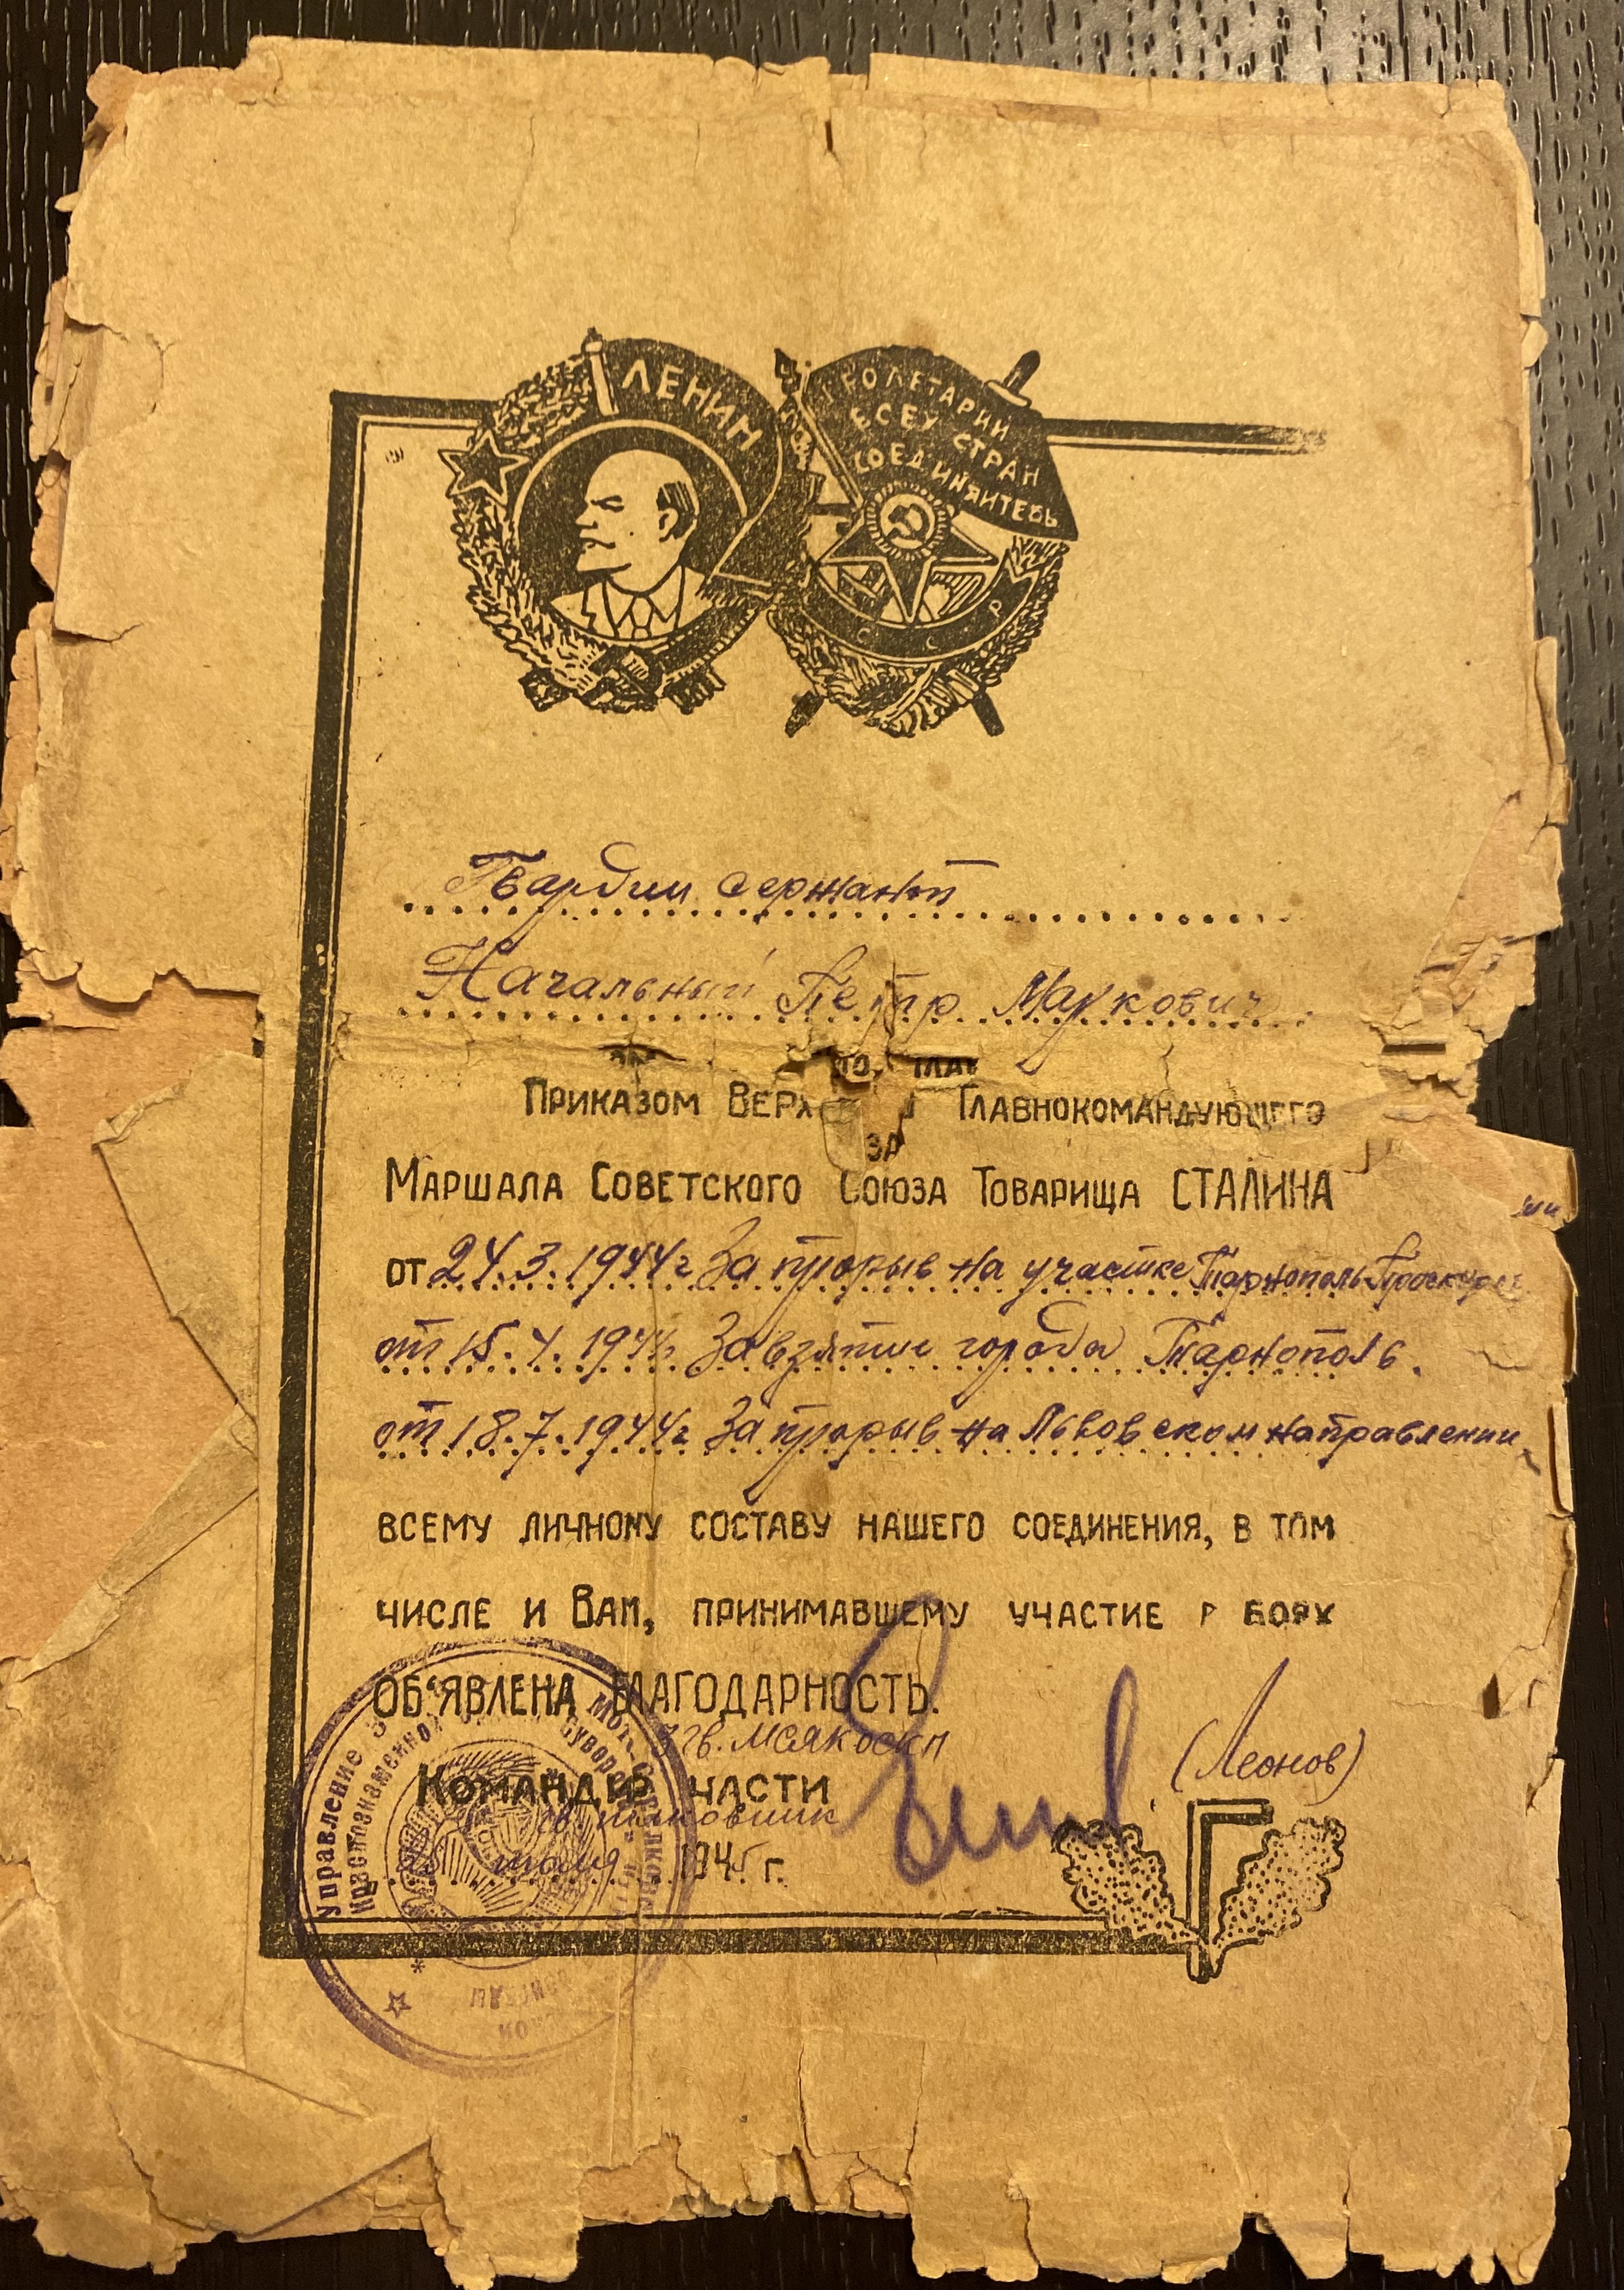 ЛЕНИН
ПРОЛЕТАРИИ
ВСЕХ СТРАН
СОЕДИНЯЙТЕСЬ
СССР
Гвардии сержант
Начальный Петр Маркович
Приказом Верх Главнокомандующего
ЗА
Маршала Советского Союза Товарища СТАЛИНА
от 24.3.1944г За прорыв на участке Тарнополь Проскуров
от 15.4.1944г За взятие города Тарнополь.
от 18.7.1944г За прорыв на Львовском направлении
всему личному составу нашего соединения, в том
числе и Вам, принимавшему участие в боях
об'явлена благодарность.
Командир части
гв. полковник
(Леонов)
июля 1945 г.
Управление
Краснознаменной